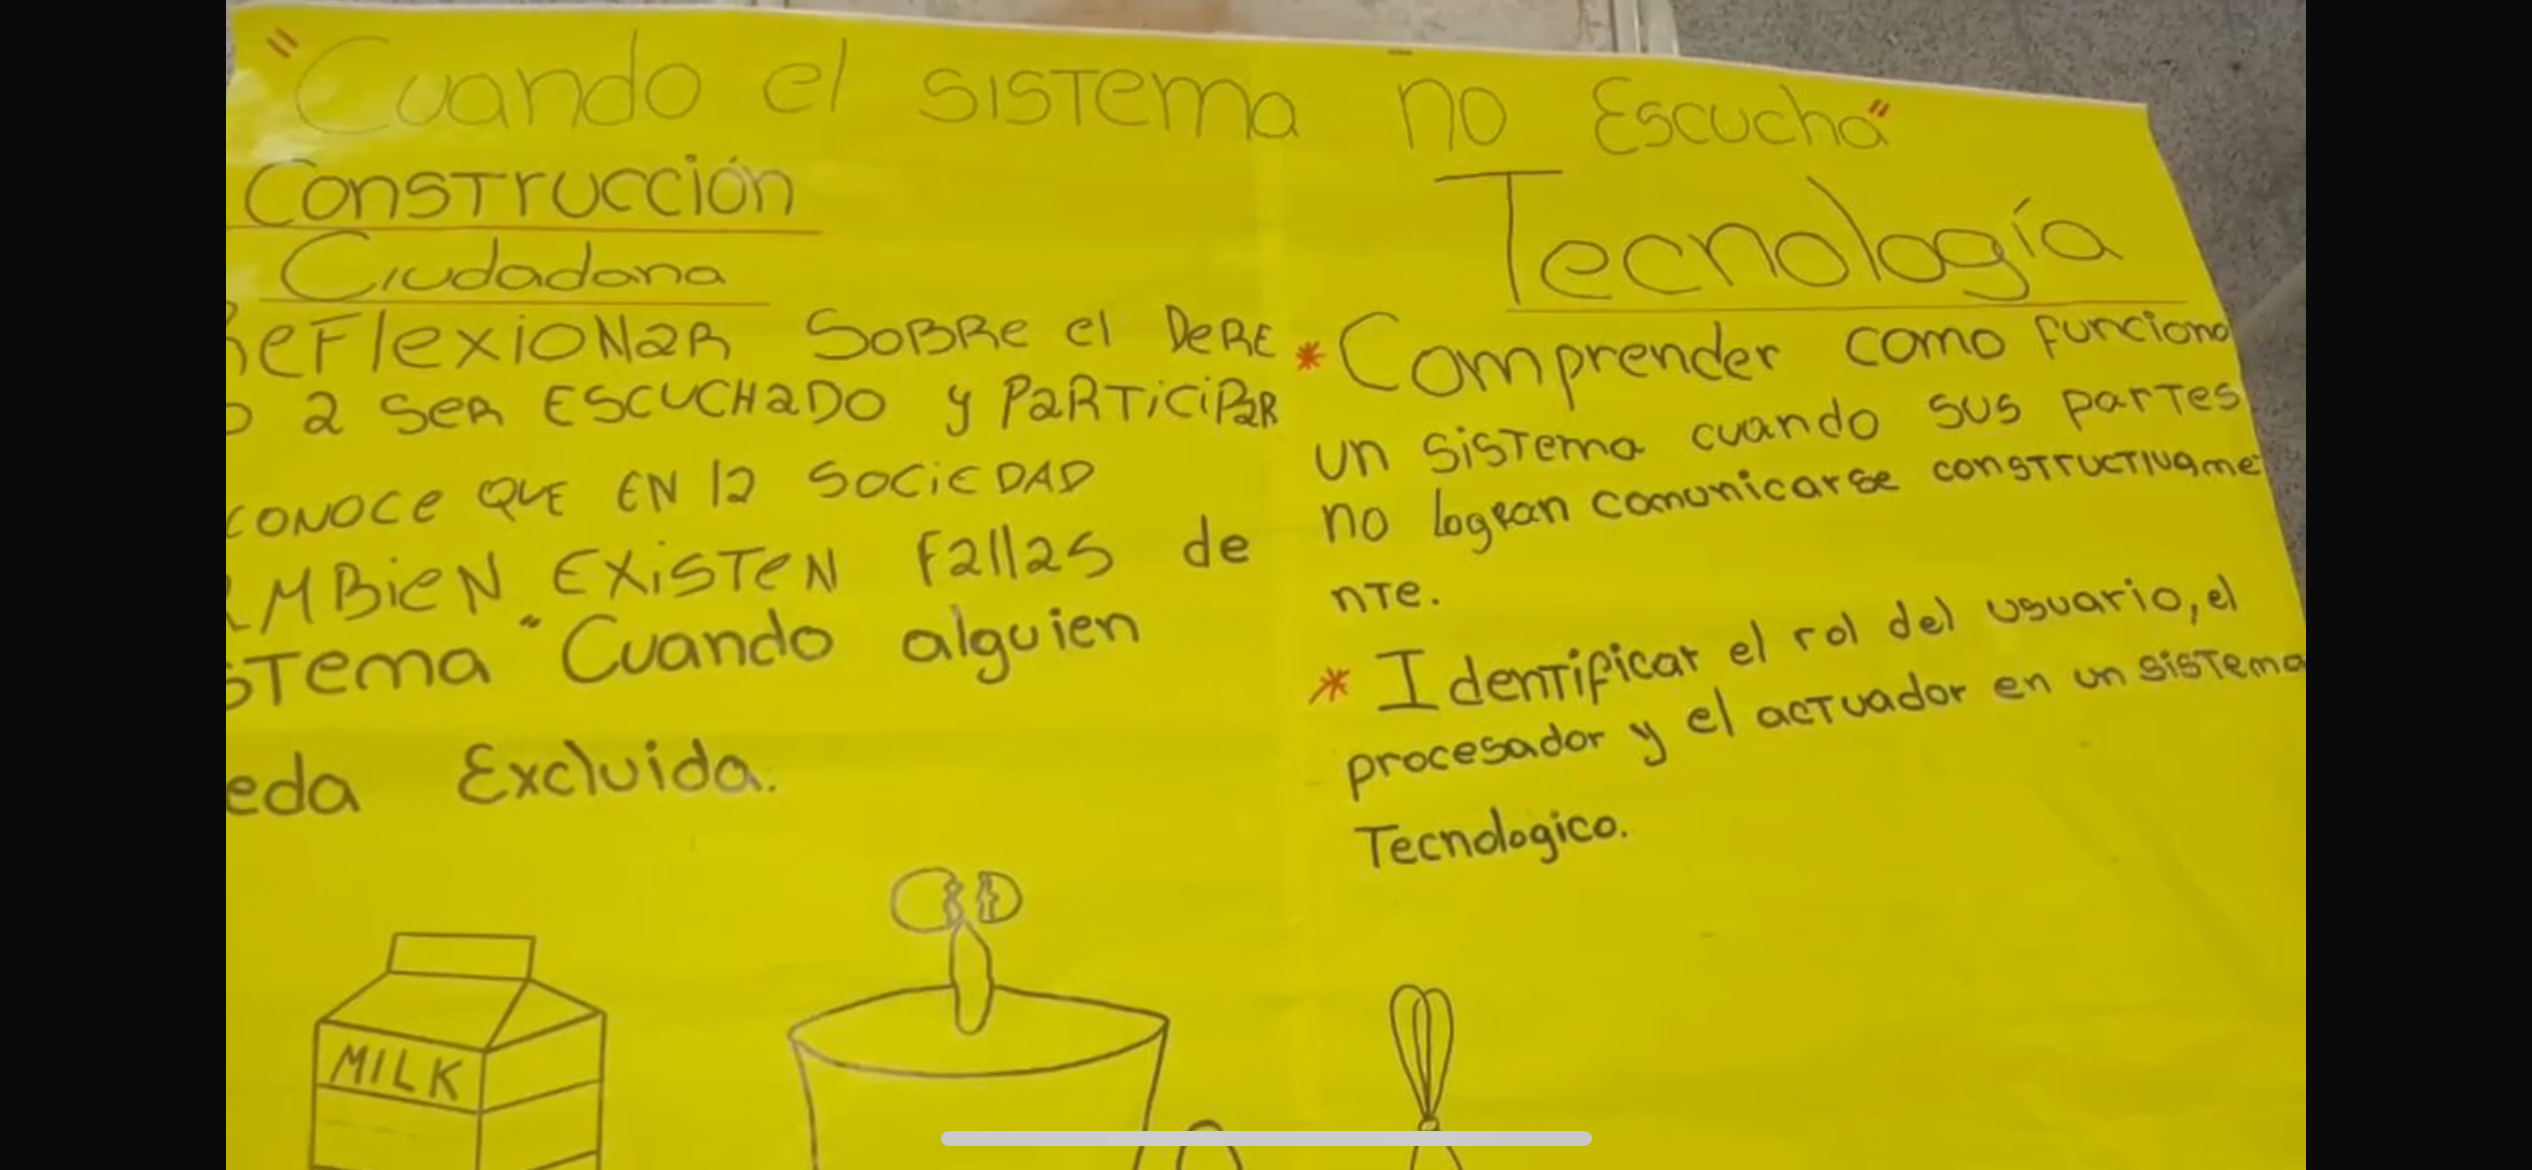 "Cuando el sistema no Escucha"
Construcción
Ciudadana
ReFlexioNaR SoBRe el DeRE
o a SeR ESCUCHaDO y PaRTiCiPaR
CONOCe QUE EN la SOCiEDAD
MBieN EXiSTeN Fallas de
sTema "Cuando alguien
eda Excluida.
Tecnología
* Comprender como funciona
un sistema cuando sus partes
no logran comunicarse constructivame
nte.
* Identificar el rol del usuario, el
procesador y el actuador en un sistema
Tecnologico.
MILK